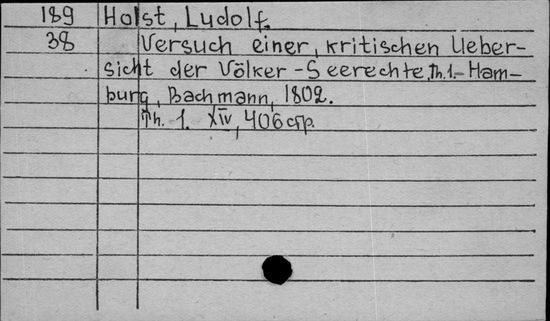 189 Holst, Ludolf.
38 Versuch einer, kritischen Ueber-
sicht der Völker-Seerechte, Th.1.- Ham-
burg, Bachmann, 1802.
Th. 1. XIV, 406 стр.